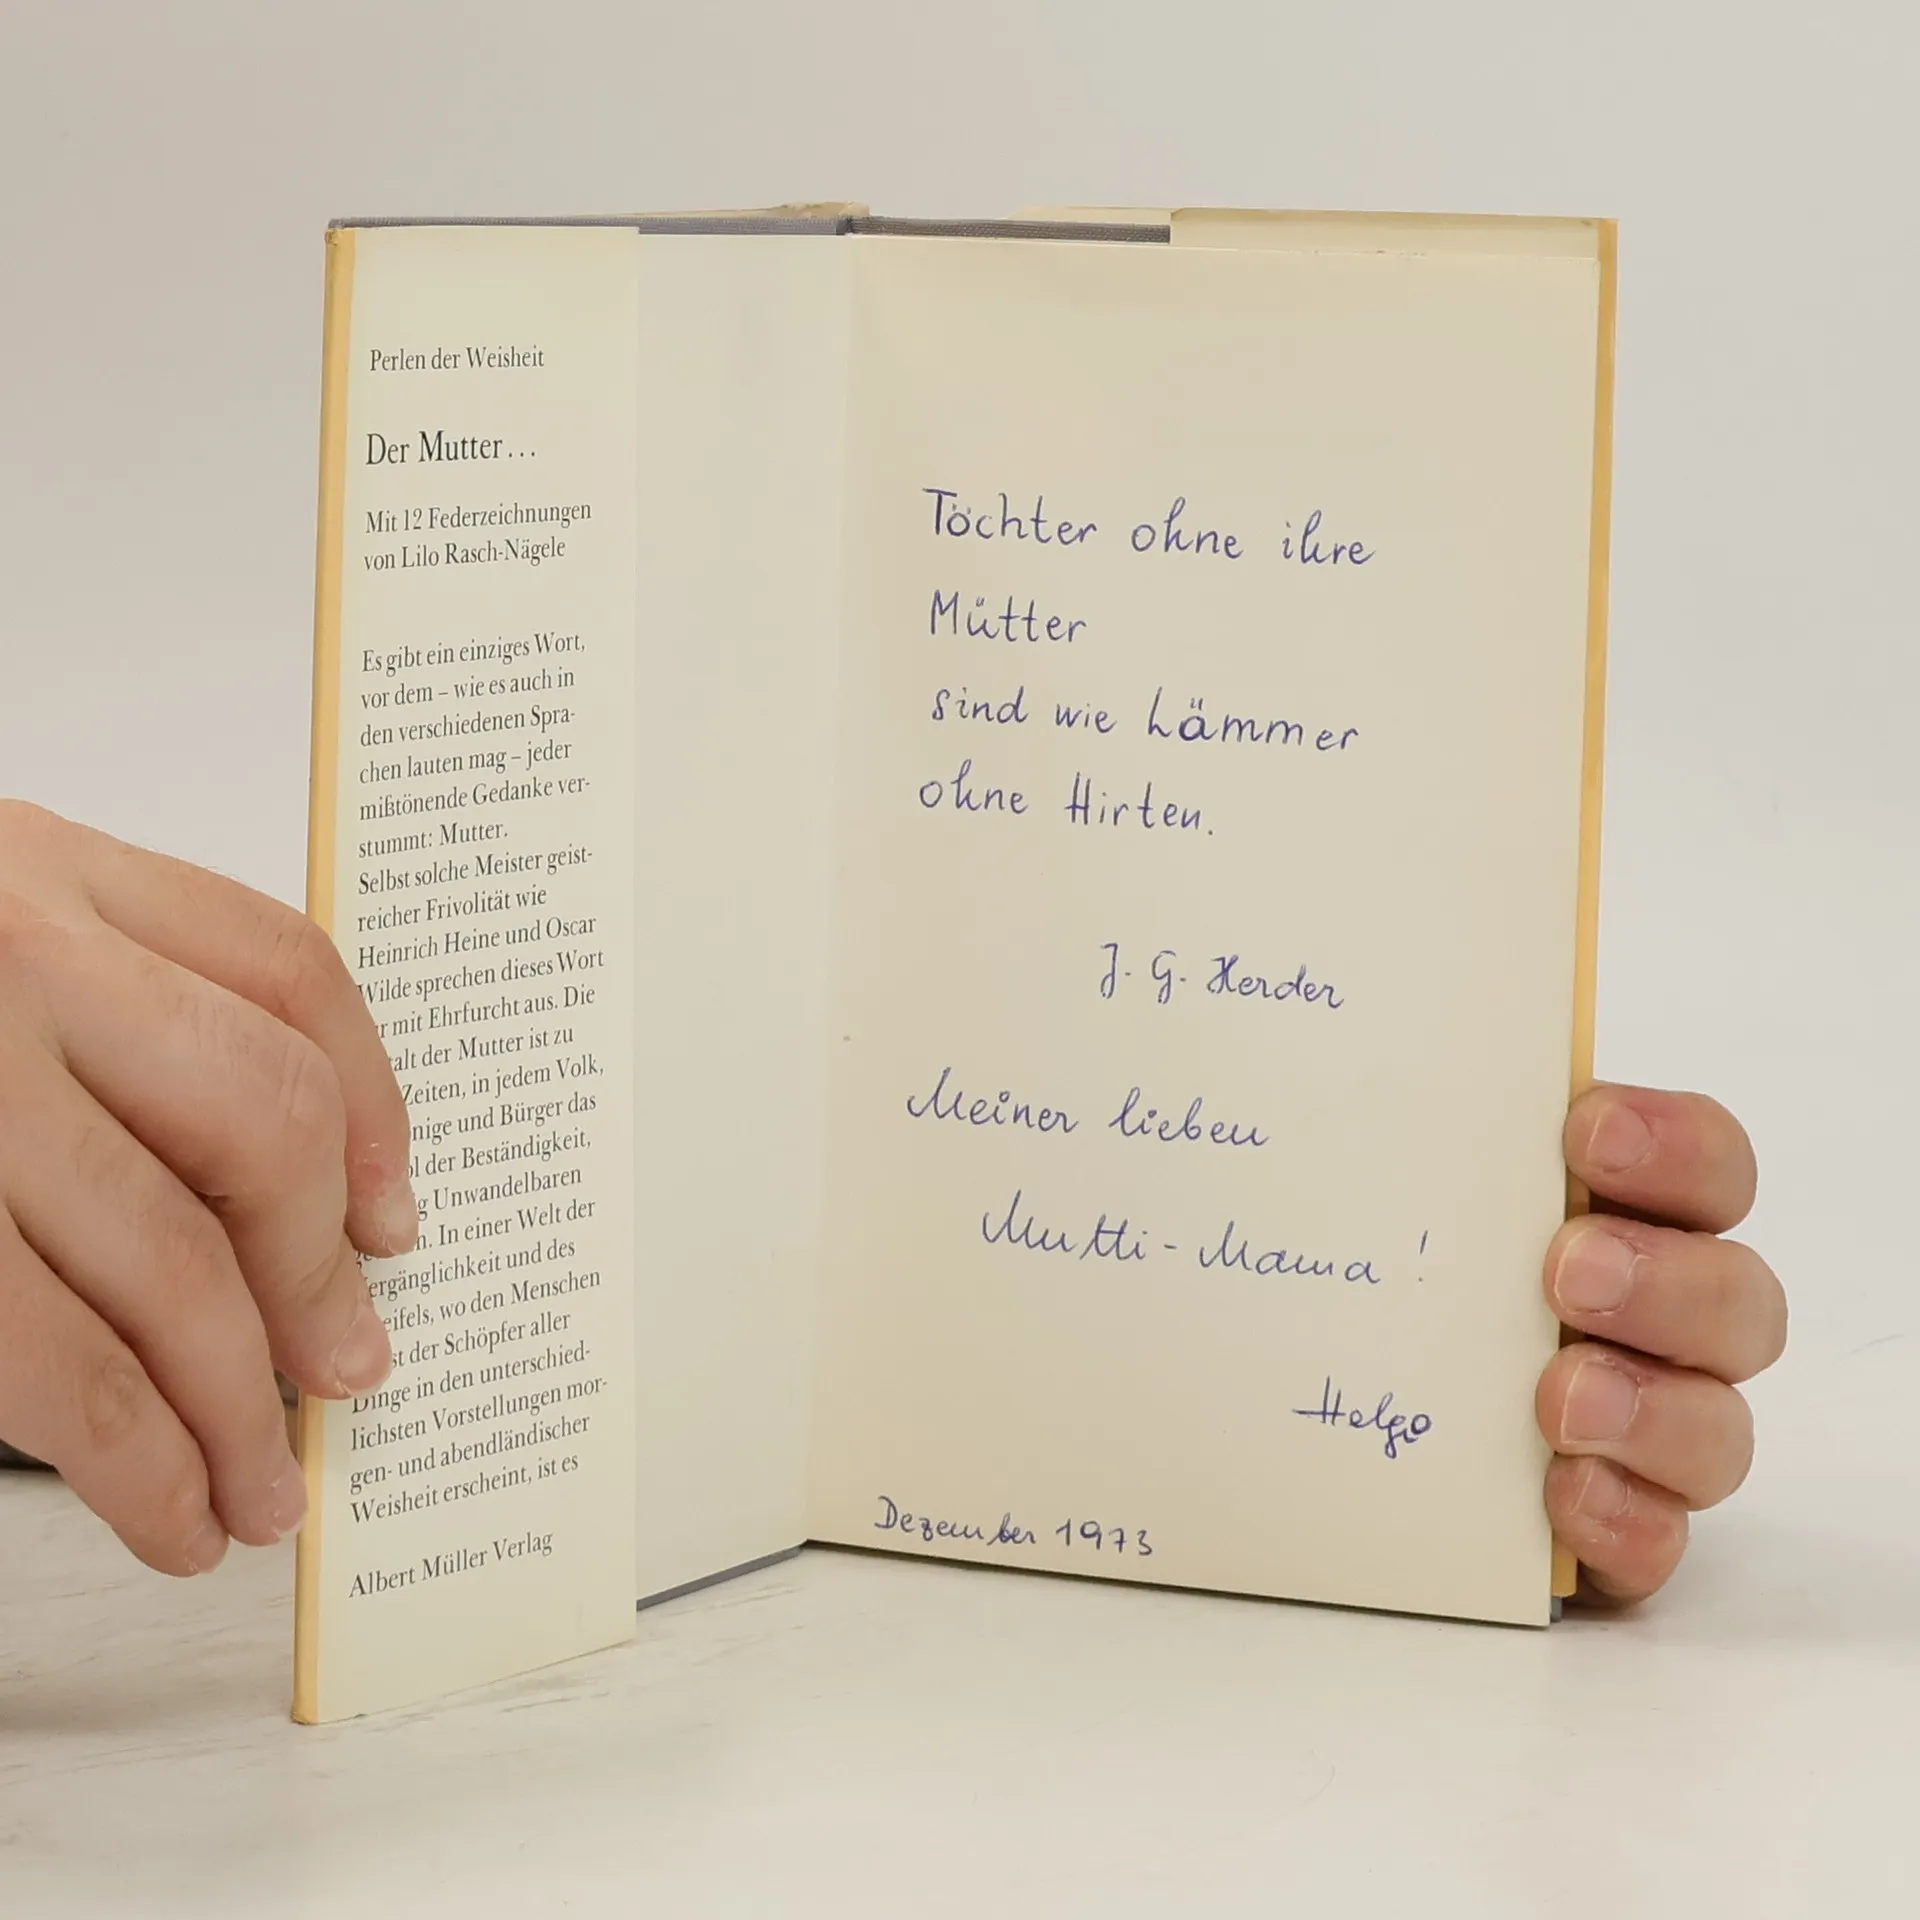 Perlen der Weisheit
Der Mutter...
Mit 12 Federzeichnungen
von Lilo Rasch-Nägele
Es gibt ein einziges Wort,
vor dem – wie es auch in
den verschiedenen Spra-
chen lauten mag – jeder
mißtönende Gedanke ver-
stummt: Mutter.
Selbst solche Meister geist-
reicher Frivolität wie
Heinrich Heine und Oscar
Wilde sprechen dieses Wort
mit Ehrfurcht aus. Die
der Mutter ist zu
Zeiten, in jedem Volk,
und Bürger das
der Beständigkeit,
Unwandelbaren
In einer Welt der
ergänglichkeit und des
eifels, wo den Menschen
st der Schöpfer aller
Dinge in den unterschied-
lichsten Vorstellungen mor-
gen- und abendländischer
Weisheit erscheint, ist es
Albert Müller Verlag
Töchter ohne ihre
Mütter
sind wie Lämmer
ohne Hirten.
J. G. Herder
Meiner lieben
Mutti-Mama!
Dezember 1973